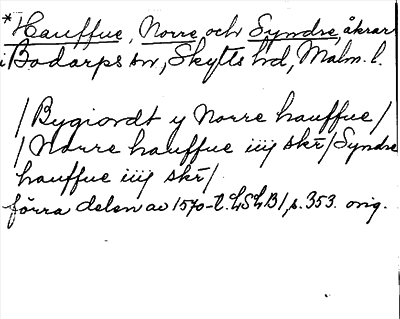 *Hauffue, Norre och Syndre, åkrar
i Bodarps sn, Skytts hd, Malm. l.
/Bygiordt y Norre hauffue/
/Norre hauffue iiij skr/Syndre
hauffue iiij skr/
förra delen av 1570-t. LSLB1, s. 353. orig.